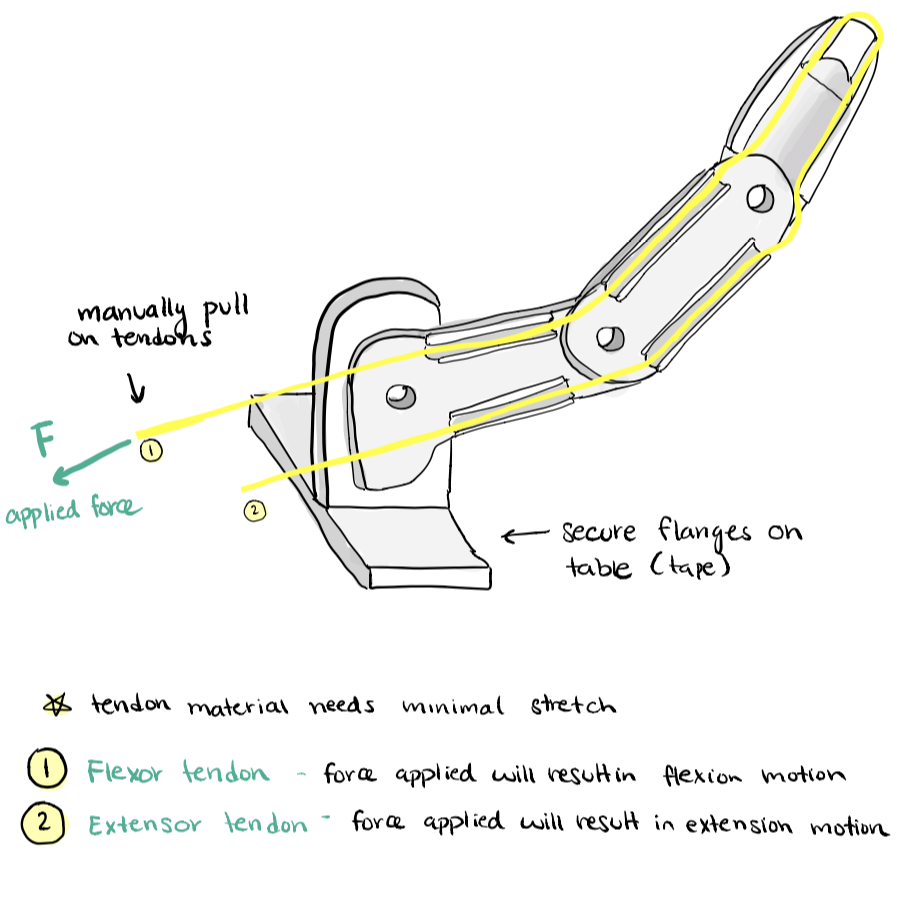 manually pull
on tendons
F
applied force
1
2
← secure flanges on
table (tape)
☆ tendon material needs minimal stretch
1 Flexor tendon - force applied will result in flexion motion
2 Extensor tendon - force applied will result in extension motion